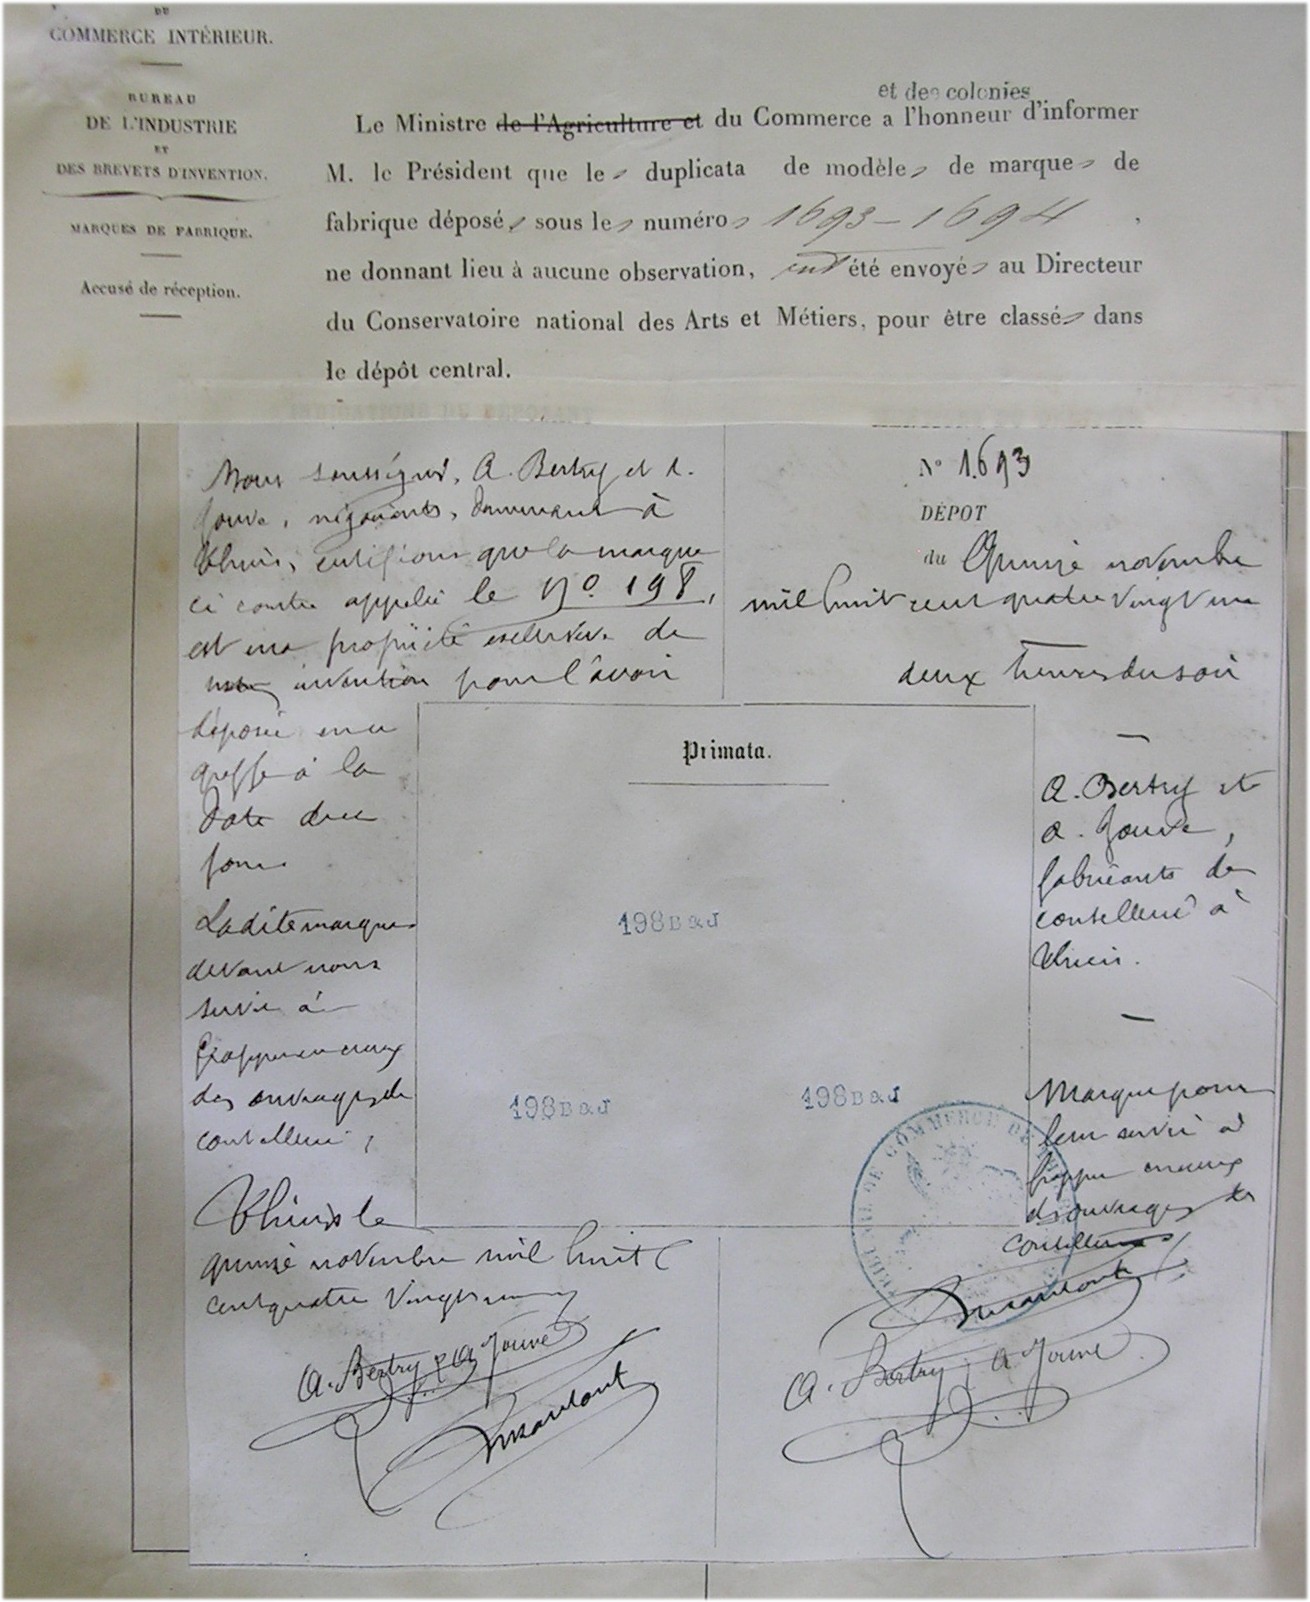 DU
COMMERCE INTÉRIEUR.
BUREAU
DE L'INDUSTRIE
ET
DES BREVETS D'INVENTION.
MARQUES DE FABRIQUE.
Accusé de réception.
et des colonies
Le Ministre de l'Agriculture et du Commerce a l'honneur d'informer
M. le Président que les duplicata de modèles de marques de
fabrique déposés sous les numéros 1693 - 1694
ne donnant lieu à aucune observation, ont été envoyés au Directeur
du Conservatoire national des Arts et Métiers, pour être classés dans
le dépôt central.
Nous soussignés, A. Bertry et A.
Jouve, négociants, demeurant à
Thiers, certifions que la marque
ci contre appelée le No. 198,
est une propriété exclusive de
invention pour l'avoir
déposée en ce
greffe à la
date de ce
jour
Ladite marque
devant nous
servir à
frapper en creux
des ouvrages de
coutellerie ;
Thiers le
quinze novembre mil huit
cent quatre vingt un
A. Bertry & A Jouve
N° 1693
DÉPOT
du Quinze novembre
mil huit cent quatre vingt un
deux heures du soir
Primata.
198 B & J
198 B & J
198 B & J
A. Bertry et
A. Jouve,
fabricants de
coutellerie à
Thiers.
Marque pour
leur servir à
frapper en creux
des ouvrages de
coutellerie
TRIBUNAL DE COMMERCE DE
A. Bertry & A Jouve